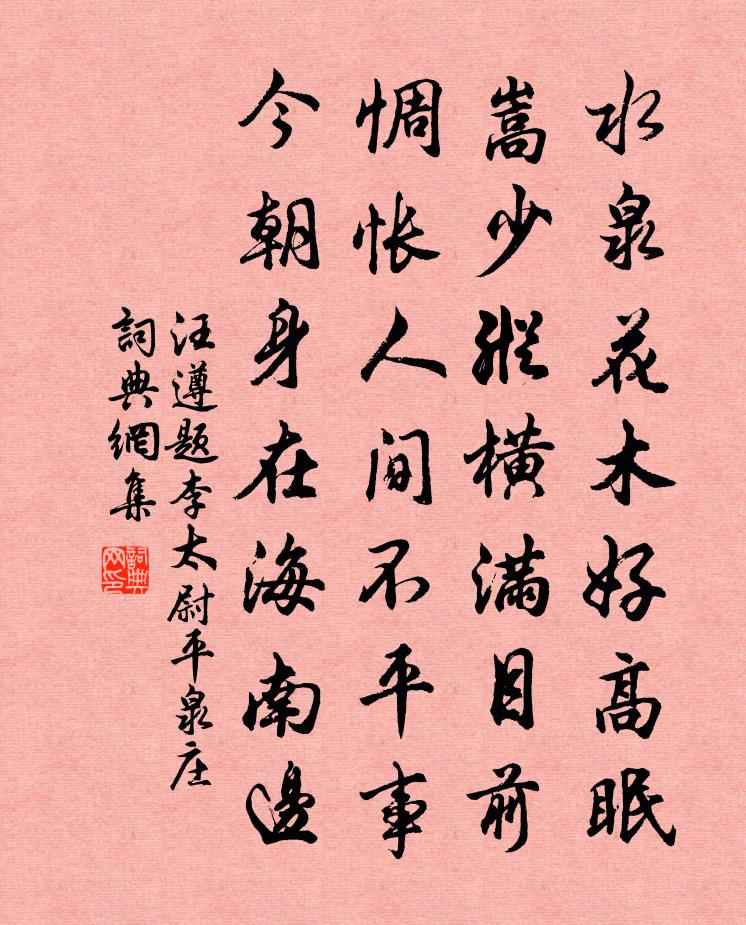 水泉花木好高眠
嵩少縱橫滿目前
惆怅人间不平事
今朝身在海南邊
汪遵题李太尉平泉庄
詞典網集
詞典网印